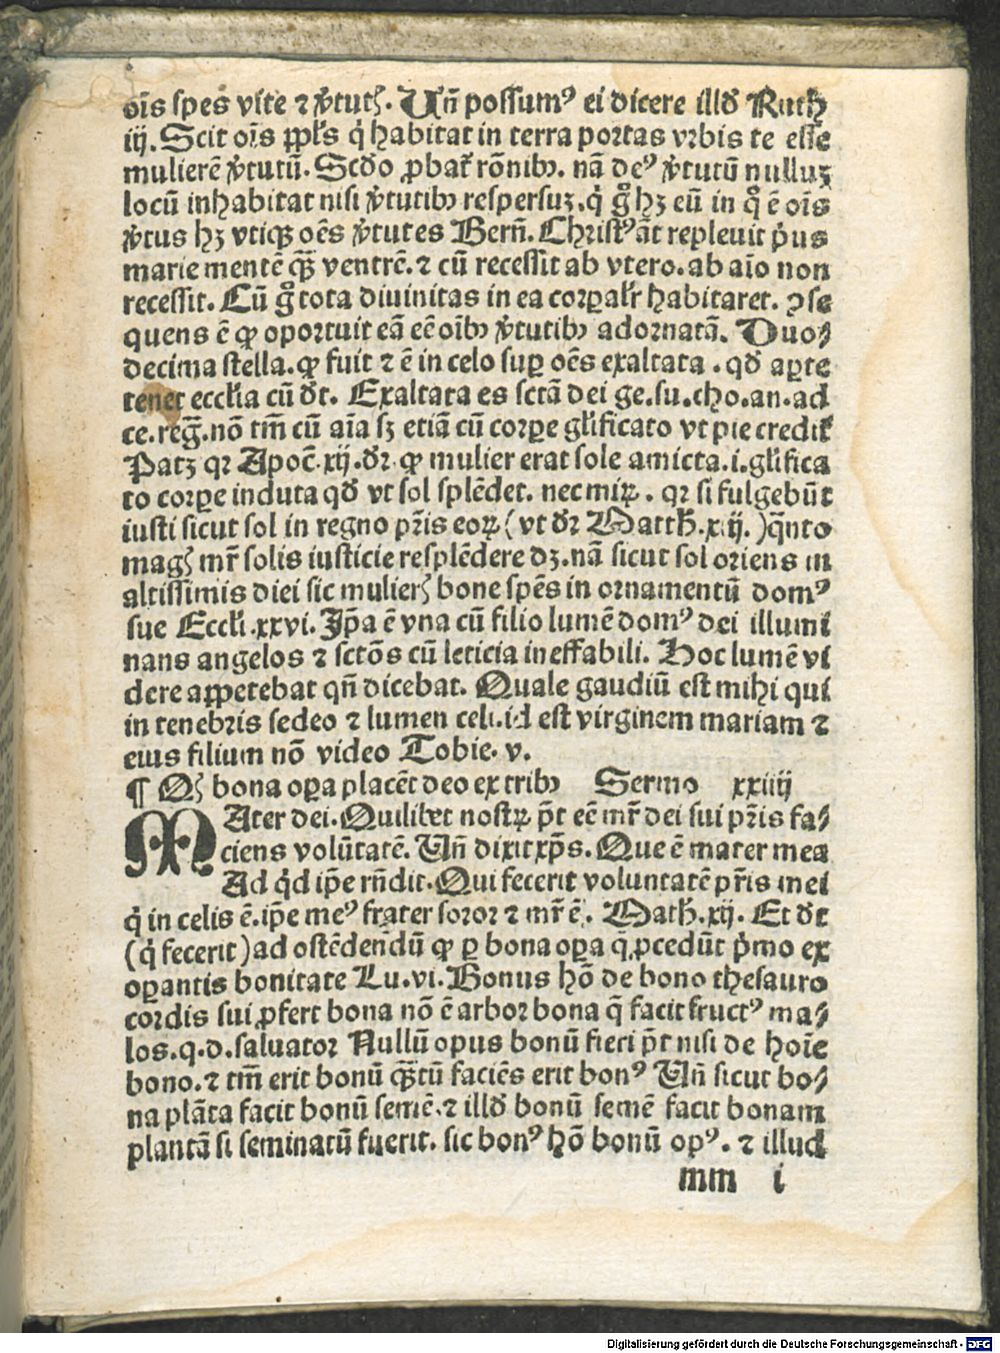 oīs spes vite ⁊ v̾tutꝭ. Un̄ possumꝰ ei dicere illđ Ruth
iij. Scit oīs ppl̄s q̇ habitat in terra portas vrbis te esse
mulierē v̾tutū. Scđo ꝓbat̄ rōnibꝫ. nā deꝰ v̾tutū nulluꝫ
locū inhabitat nisi v̾tutibꝫ respersuꝫ. q̇ gͦ hꝫ eū in qͦ ē oīs
v̾tus hꝫ vtiqꝫ oēs v̾tutes Bern̄. Christꝰ āt repleuit p̓us
marie mentē qꝫ̄ ventrē. ⁊ cū recessit ab vtero. ab aīo non
recessit. Cū gͦ tota diuinitas in ea corꝑalr̄ habitaret. ꝯse
quens ē ꝙ oportuit eā eē oībꝫ v̾tutibꝫ adornatā. Duo⸗
decima stella. ꝙ fuit ⁊ ē in celo suꝑ oēs exaltata. qđ aꝑte
tenet eccl̄ia cū dt̄. Exaltata es sctā dei ge. su. cho. an. ad
ce. reḡ. nō tm̄ cū aīa sꝫ etiā cū corꝑe gl̄ificato vt pie credit̄
Patꝫ qꝛ Apoc̄. xij. dr̄. ꝙ mulier erat sole amicta. i. gl̄ifica
to corꝑe induta qđ vt sol splēdet. nec miꝝ. qꝛ si fulgebūt
iusti sicut sol in regno pr̄is eoꝝ (vt dr̄ Matth̄. xiij.) q̄nto
magꝭ mr̄ solis iusticie resplēdere dꝫ. nā sicut sol oriens in
altissimis diei sic mulierꝭ bone spēs in ornamentū domꝰ
sue Eccl̄i. xxvi. Ip̄a ē vna cū filio lumē domꝰ dei illumi
nans angelos ⁊ sctōs cū leticia ineffabili. Hoc lumē vi
dere appetebat qn̄ dicebat. Quale gaudiū est mihi qui
in tenebris sedeo ⁊ lumen celi. id est virginem mariam ⁊
eius filium nō video Tobie. v.
¶ Qꝭ bona oꝑa placēt deo ex tribꝫ Sermo xxiiij
MAter dei. Quilibet nostꝝ p̄t eē mr̄ dei sui pr̄is fa⸗
ciens volūtatē. Un̄ dixit xp̄s. Que ē mater mea
Ad q̇d ip̄e rn̄dit. Qui fecerit voluntatē pr̄is mei
q̇ in celis ē. ip̄e meꝰ frater soror ⁊ mr̄ ē. Math̄. xij. Et dt̄
(q̇ fecerit) ad ostēdendū ꝙ ꝑ bona oꝑa q̄ ꝓcedūt p̓mo ex
oꝑantis bonitate Lu. vi. Bonus hō de bono thesauro
cordis sui ꝓfert bona nō ē arbor bona q̄ facit fructꝰ ma⸗
los. q. d. saluator Nullū opus bonū fieri p̄t nisi de hoīe
bono. ⁊ tm̄ erit bonū qꝫ̄tū faciēs erit bonꝰ Un̄ sicut bo⸗
na plāta facit bonū semē. ⁊ illđ bonū semē facit bonam
plantā si seminatū fuerit. sic bonꝰ hō bonū opꝰ. ⁊ illud
mm i
Digitalisierung gefördert durch die Deutsche Forschungsgemeinschaft - DFG